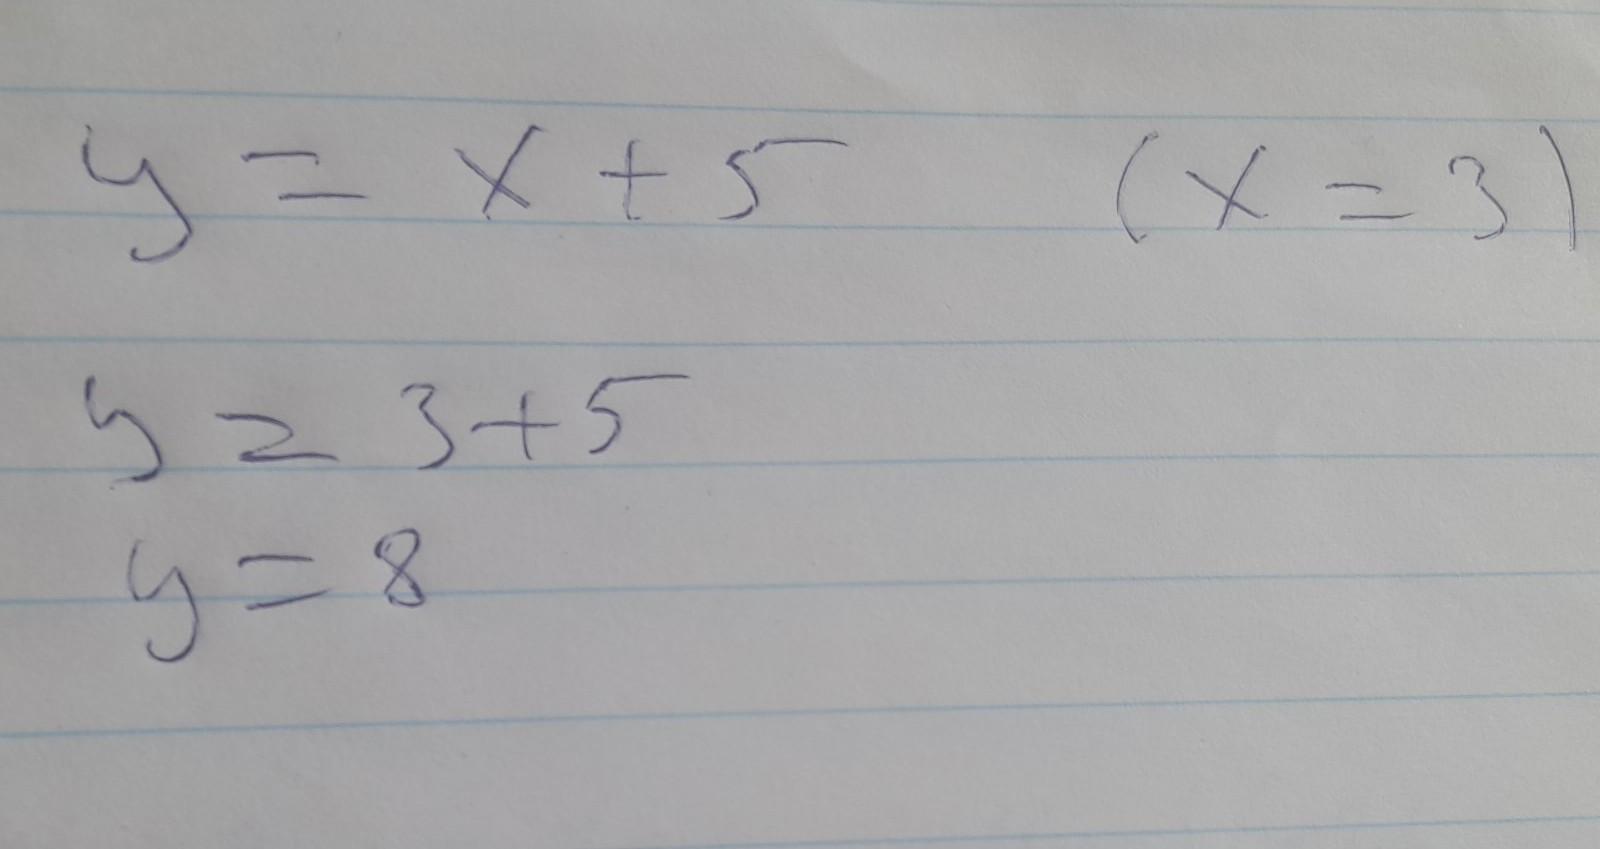 y = x + 5 (x = 3)
y = 3 + 5
y = 8